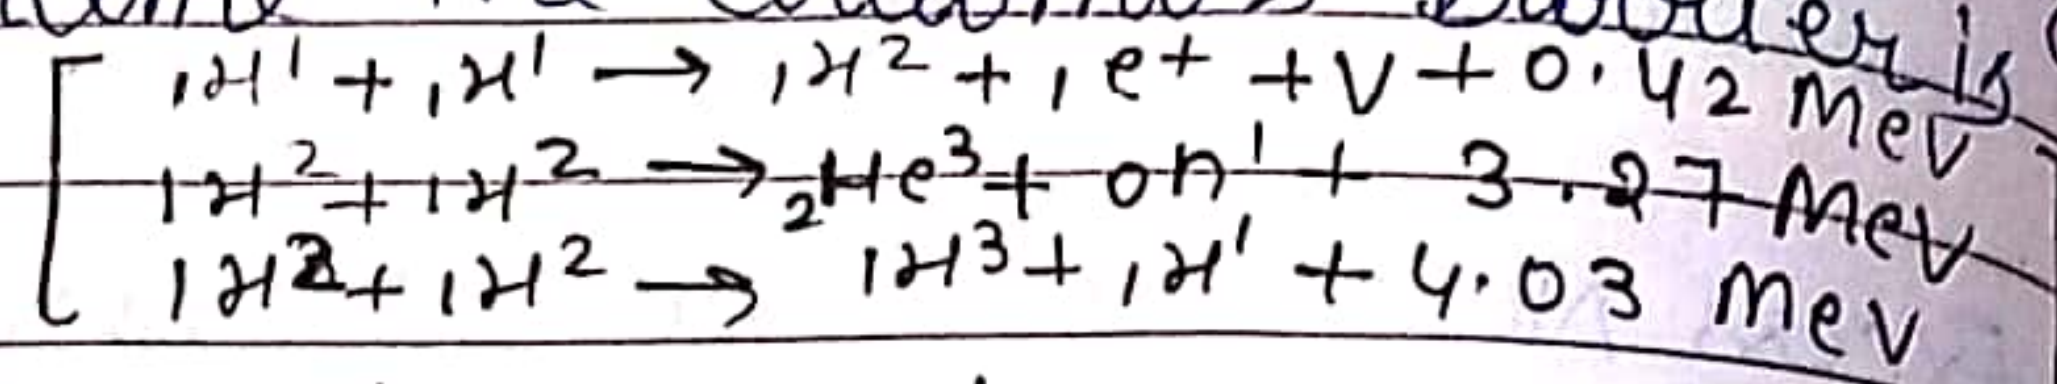 is
₁H¹ + ₁H¹ → ₁H² + ₁e⁺ + ν + 0.42 Mev
₁H² + ₁H² → ₂He³ + ₀n¹ + 3.27 Mev
₁H² + ₁H² → ₁H³ + ₁H¹ + 4.03 Mev